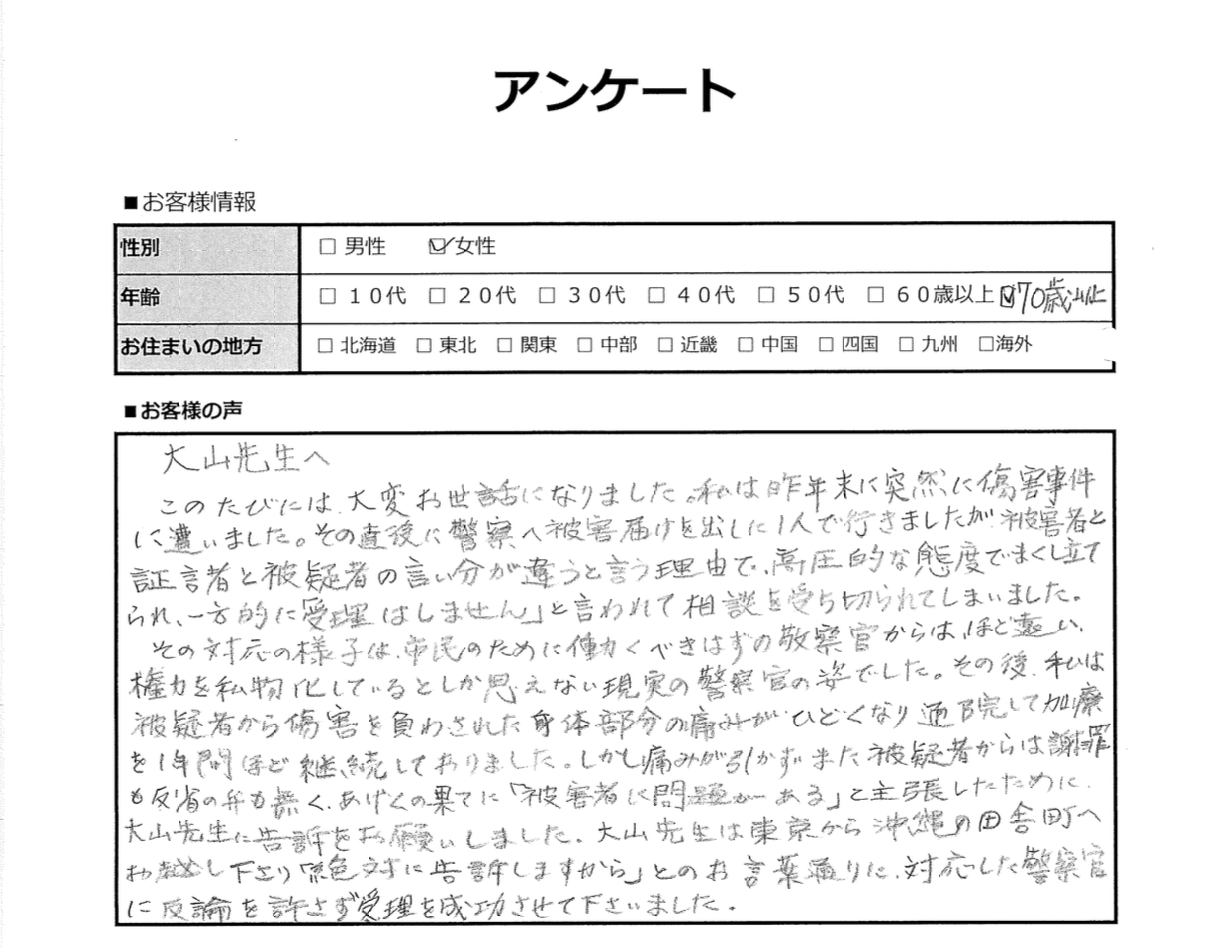 アンケート
■お客様情報
性別 □ 男性 ☑ 女性
年齢 □ 10代 □ 20代 □ 30代 □ 40代 □ 50代 □ 60歳以上 ☑70歳以上
お住まいの地方 □ 北海道 □ 東北 □ 関東 □ 中部 □ 近畿 □ 中国 □ 四国 □ 九州 □海外
■お客様の声
大山先生へ
このたびには、大変お世話になりました。私は昨年末に突然に傷害事件
に遭いました。その直後に警察へ被害届けを出しに1人で行きましたが、被害者と
証言者と被疑者の言い分が違うと言う理由で、高圧的な態度でまくし立て
られ、一方的に「受理はしません」と言われて相談を受ち切られてしまいました。
その対応の様子は、市民のために働くべきはずの敬察官からは、ほど遠い、
権力を私物化しているとしか思えない現実の警察官の姿でした。その後、私は
被疑者から傷害を負わされた身体部分の痛みがひどくなり通院して加療
を1年間ほど継続しておりました。しかし痛みが引かずまた被疑者からは謝罪
も反省の弁も無く、あげくの果てに「被害者に問題がある」と主張したために、
大山先生に告訴をお願いしました。大山先生は東京から沖縄の田舎町へ
お越し下さり「絶対に告訴しますから」とのお言葉通りに、対応した警察官
に反論を許さず受理を成功させて下さいました。